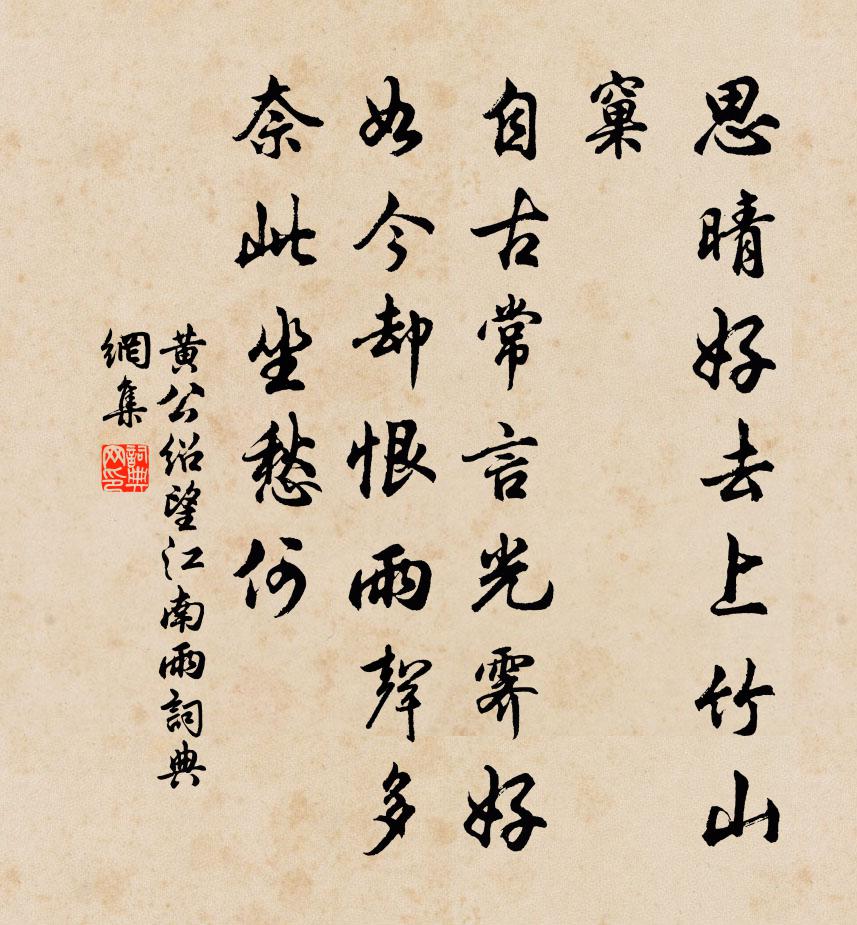 思晴好去上竹山
窠
自古常言光霽好
如今却恨雨聲多
奈此坐愁何
黃公绍望江南雨詞典
網集
詞典
网印